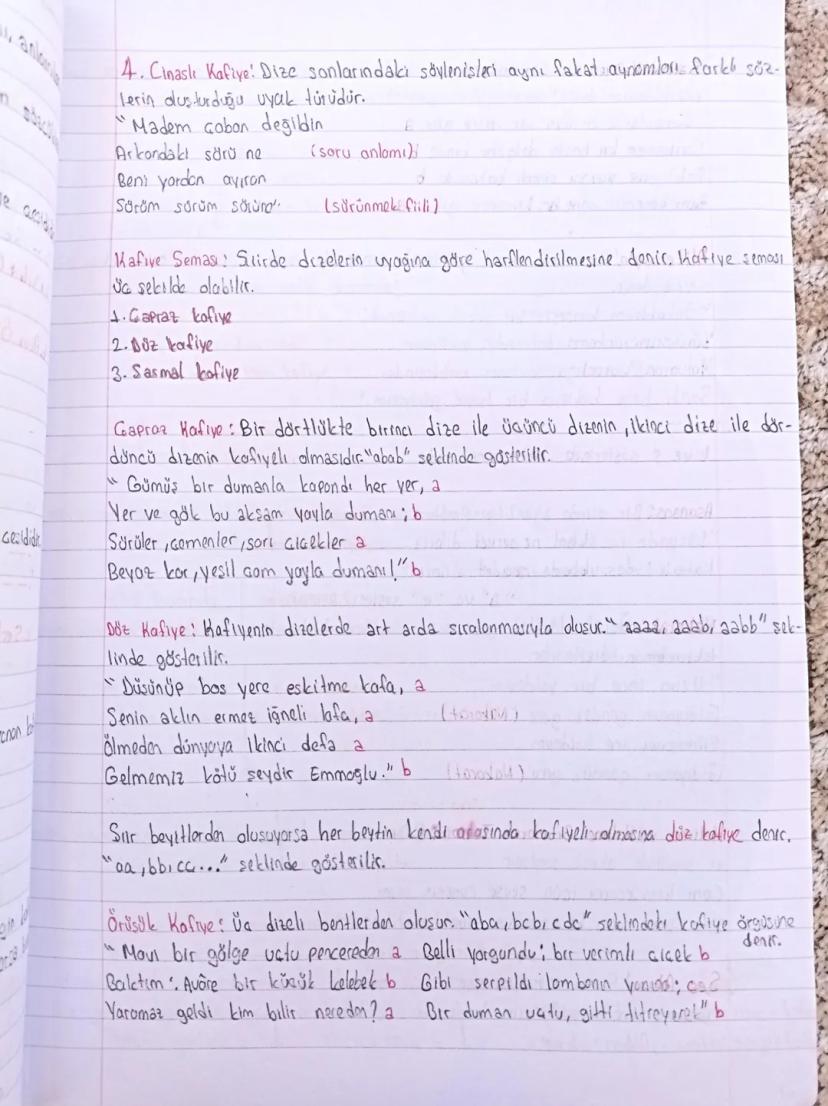 4. Cinaslı Kafiye: Dize sonlarındaki söylenişleri aynı fakat anlamları farklı söz-
lerin oluşturduğu uyak türüdür.
"Madem çoban değildin
Arkandaki sürü ne (soru anlamı)
Beni yardan ayıran
Sürüm sürüm sürüne (sürünmek fiili)
Kafiye Şeması: Şiirde dizelerin uyağına göre harflendirilmesine denir. Kafiye şeması
üç şekilde olabilir.
1. Çapraz kafiye
2. Düz kafiye
3. Sarmal kafiye
Çapraz Kafiye: Bir dörtlükte birinci dize ile üçüncü dizenin, ikinci dize ile dör-
düncü dizenin kafiyeli olmasıdır. "abab" şeklinde gösterilir.
"Gümüş bir dumanla kapandı her yer, a
Yer ve gök bu akşam yayla dumanı; b
Sürüler, çemenler, sarı çiçekler a
Beyaz kar, yeşil çam yayla dumanı!" b
Düz Kafiye: Kafiyenin dizelerde art arda sıralanmasıyla oluşur. "aaaa, aaab, aabb" şek-
linde gösterilir.
"Düşünüp boş yere eskitme kafa, a
Senin aklın ermez iğneli lafa, a
Ölmeden dünyaya ikinci defa a
Gelmemiz kötü şeydir Emmoğlu." b
Şiir beyitlerden oluşuyorsa her beytin kendi arasında kafiyeli olmasına düz kafiye denir.
"aa, bb, cc..." şeklinde gösterilir.
Örüşük Kafiye: Üç dizeli bentlerden oluşur. "aba, bcb, cdc" şeklindeki kafiye örgüsüne
denir.
"Mavi bir gölge uçtu pencereden a Belli yorgundu; bir verimli çiçek b
Baktım: Avâre bir küçük kelebek b Gibi serpildi lambanın yanına; c
Yaramaz geldi kim bilir nereden? a Bir duman uçtu, gitti titreyerek" b